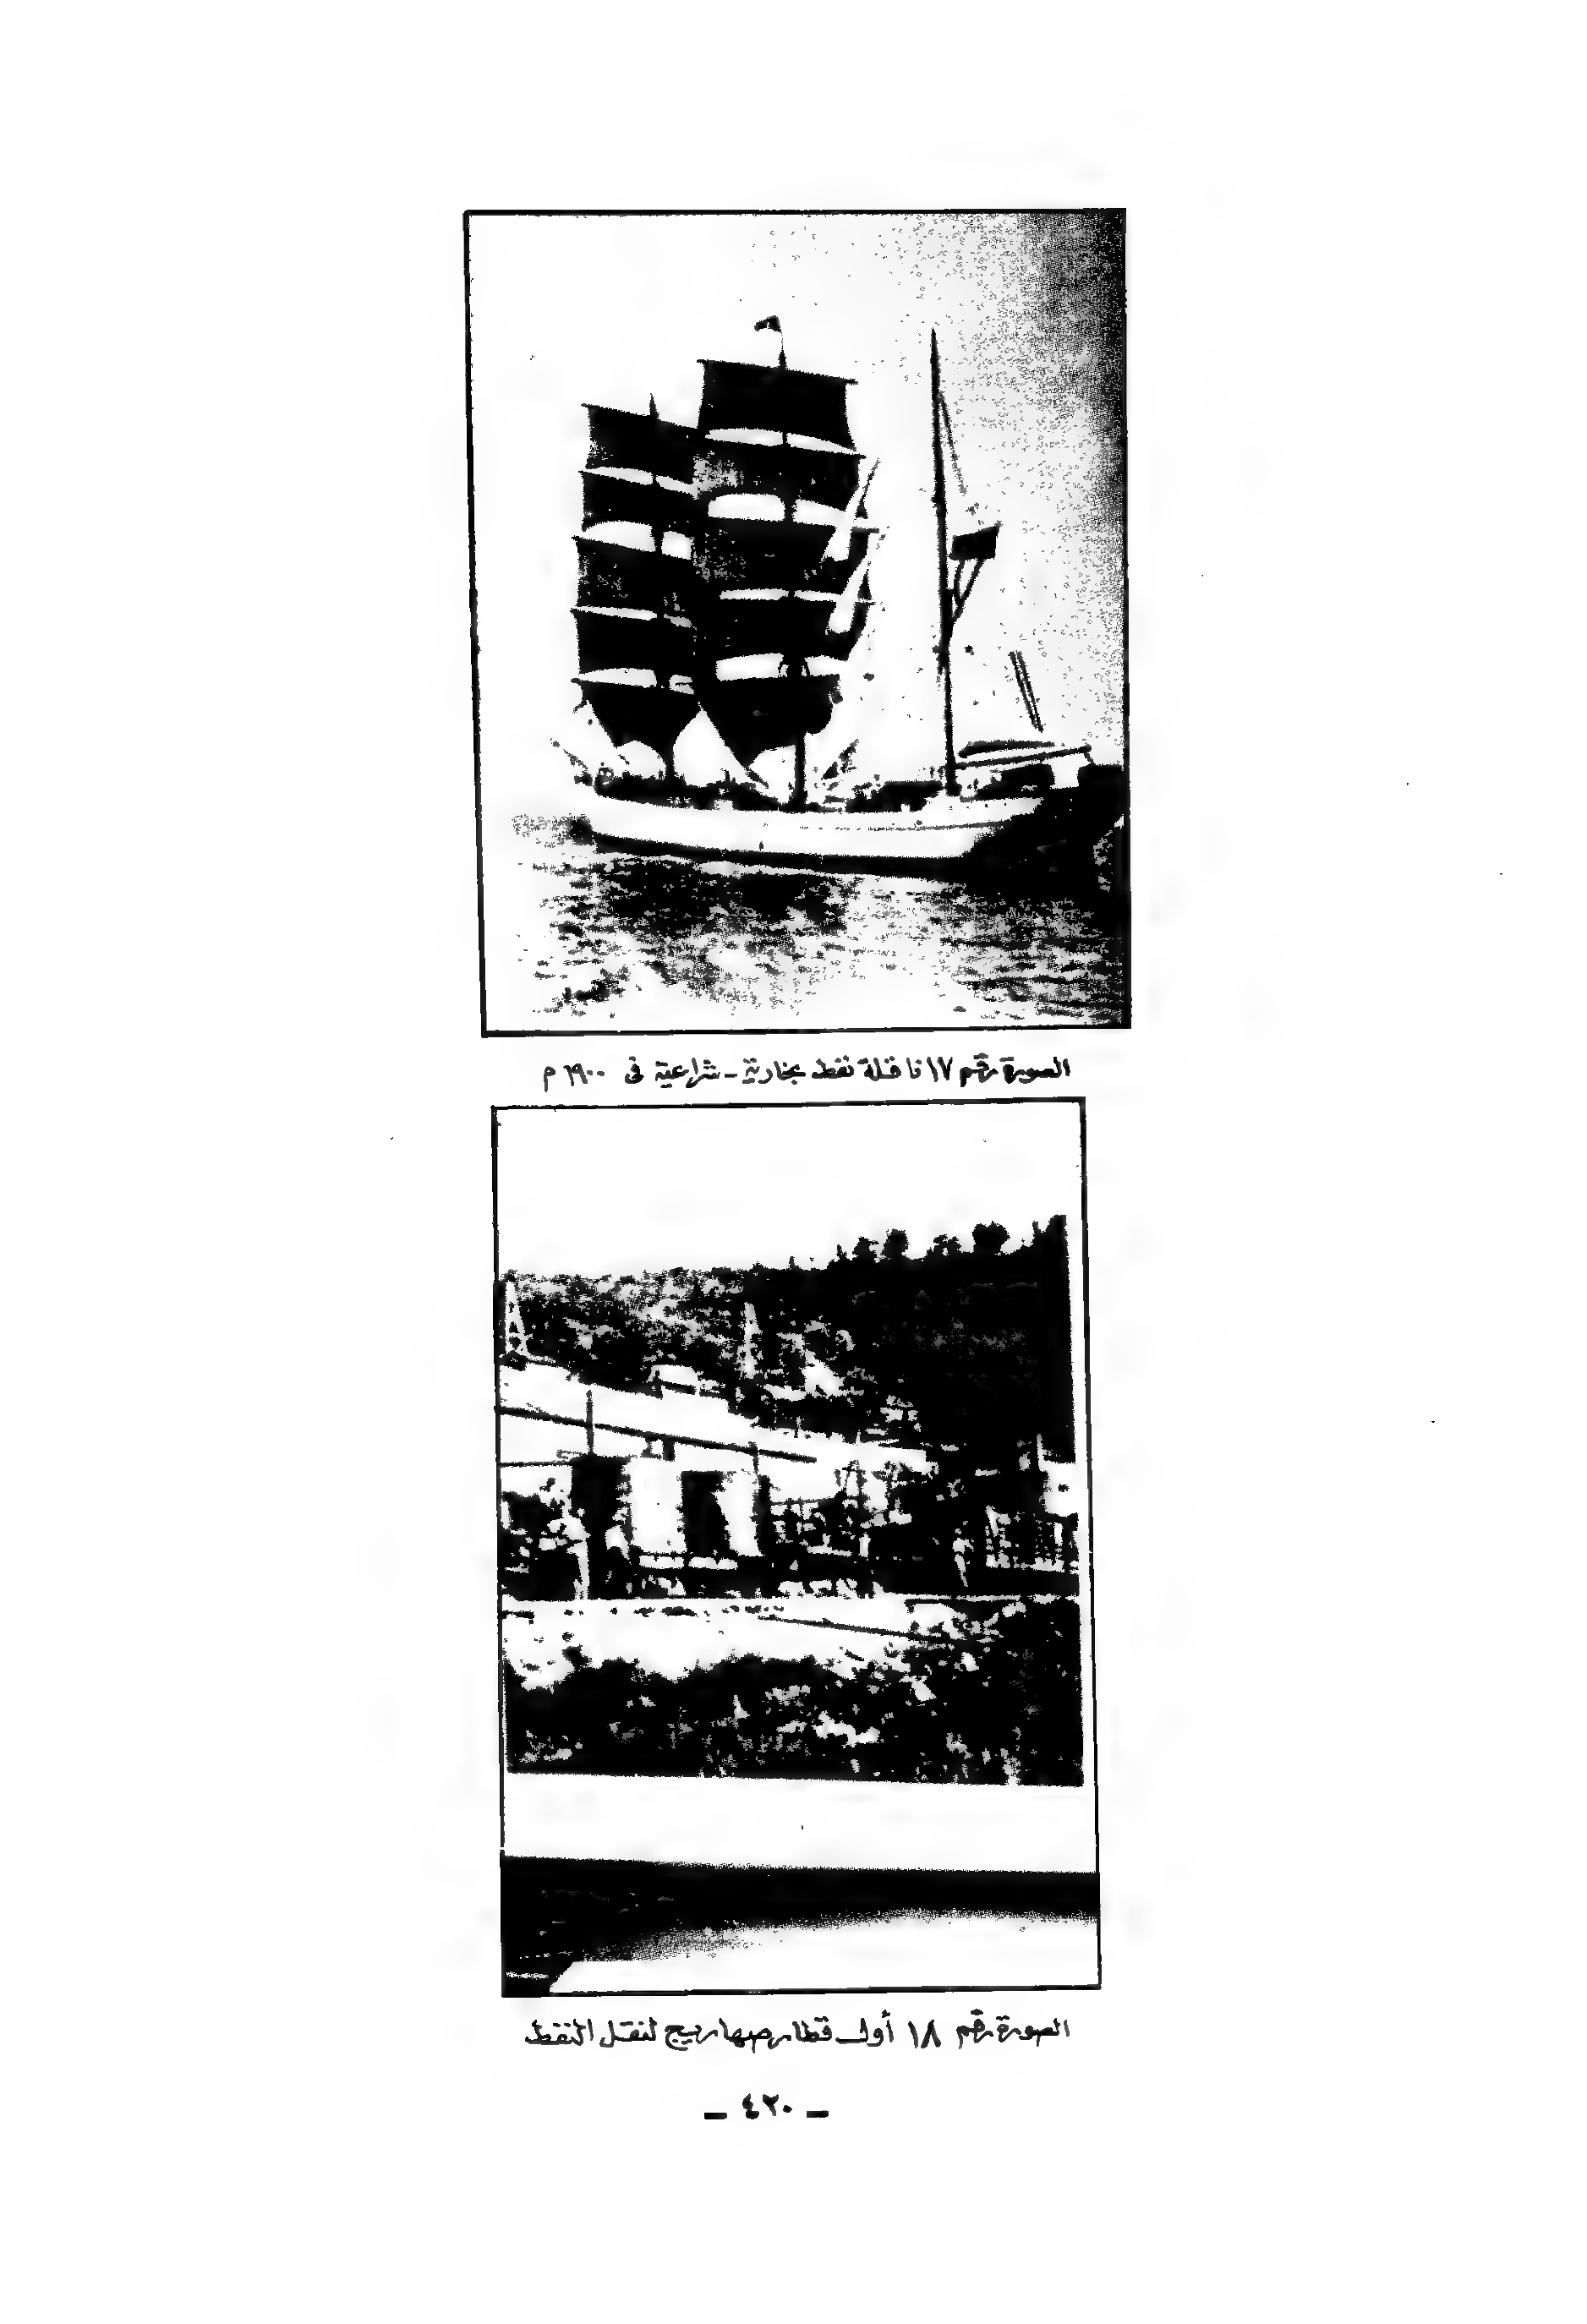 الصورة رقم ١٧ ناقلة نفط بخارية - شراعية في ١٩٠٠ م
الصورة رقم ١٨ أول قطار صهاريج لنقل النفط
- ٤٢٠ -